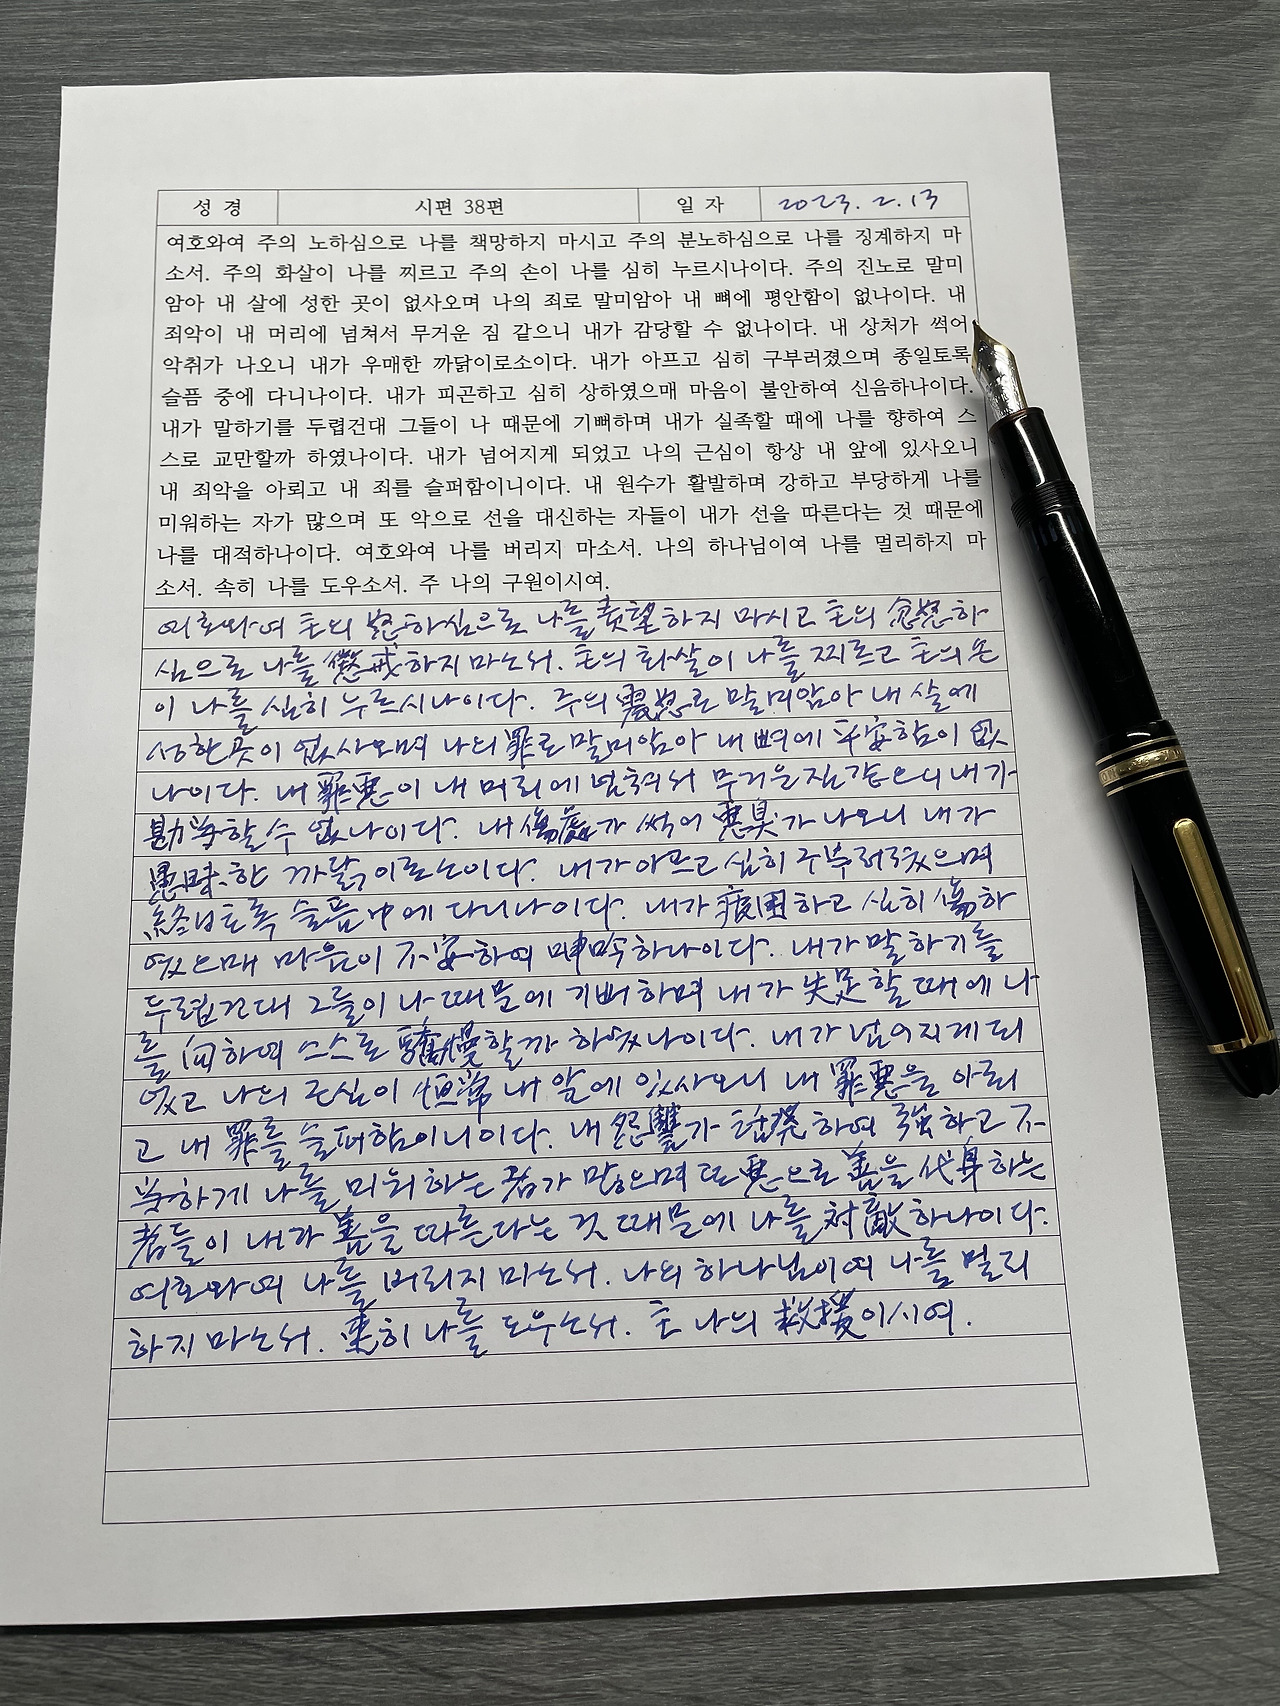 성 경 시편 38편 일 자 2023. 2. 13
여호와여 주의 노하심으로 나를 책망하지 마시고 주의 분노하심으로 나를 징계하지 마
소서. 주의 화살이 나를 찌르고 주의 손이 나를 심히 누르시나이다. 주의 진노로 말미
암아 내 살에 성한 곳이 없사오며 나의 죄로 말미암아 내 뼈에 평안함이 없나이다. 내
죄악이 내 머리에 넘쳐서 무거운 짐 같으니 내가 감당할 수 없나이다. 내 상처가 썩어
악취가 나오니 내가 우매한 까닭이로소이다. 내가 아프고 심히 구부러졌으며 종일토록
슬픔 중에 다니나이다. 내가 피곤하고 심히 상하였으매 마음이 불안하여 신음하나이다.
내가 말하기를 두렵건대 그들이 나 때문에 기뻐하며 내가 실족할 때에 나를 향하여 스
스로 교만할까 하였나이다. 내가 넘어지게 되었고 나의 근심이 항상 내 앞에 있사오니
내 죄악을 아뢰고 내 죄를 슬퍼함이니이다. 내 원수가 활발하며 강하고 부당하게 나를
미워하는 자가 많으며 또 악으로 선을 대신하는 자들이 내가 선을 따른다는 것 때문에
나를 대적하나이다. 여호와여 나를 버리지 마소서. 나의 하나님이여 나를 멀리하지 마
소서. 속히 나를 도우소서. 주 나의 구원이시여.
여호와여 主의 怒하심으로 나를 責望하지 마시고 主의 忿怒하
심으로 나를 懲戒하지 마소서. 主의 화살이 나를 찌르고 主의 손
이 나를 심히 누르시나이다. 주의 震怒로 말미암아 내 살에
성한 곳이 없사오며 나의 罪로 말미암아 내 뼈에 平安함이 없
나이다. 내 罪惡이 내 머리에 넘쳐서 무거운 짐 같으니 내가
勘當할 수 없나이다. 내 傷處가 썩어 惡臭가 나오니 내가
愚昧한 까닭이로소이다. 내가 아프고 심히 구부러졌으며
終日토록 슬픔 中에 다니나이다. 내가 疲困하고 심히 傷하
였으매 마음이 不安하여 呻吟하나이다. 내가 말하기를
두렵건대 그들이 나 때문에 기뻐하며 내가 失足할 때에 나
를 向하여 스스로 驕慢할까 하였나이다. 내가 넘어지게 되
었고 나의 근심이 恒常 내 앞에 있사오니 내 罪惡을 아뢰
고 내 罪를 슬퍼함이니이다. 내 怨讐가 活發하여 强하고 不
當하게 나를 미워하는 者가 많으며 또 惡으로 善을 代身하는
者들이 내가 善을 따른다는 것 때문에 나를 對敵하나이다.
여호와여 나를 버리지 마소서. 나의 하나님이여 나를 멀리
하지 마소서. 速히 나를 도우소서. 主 나의 救援이시여.